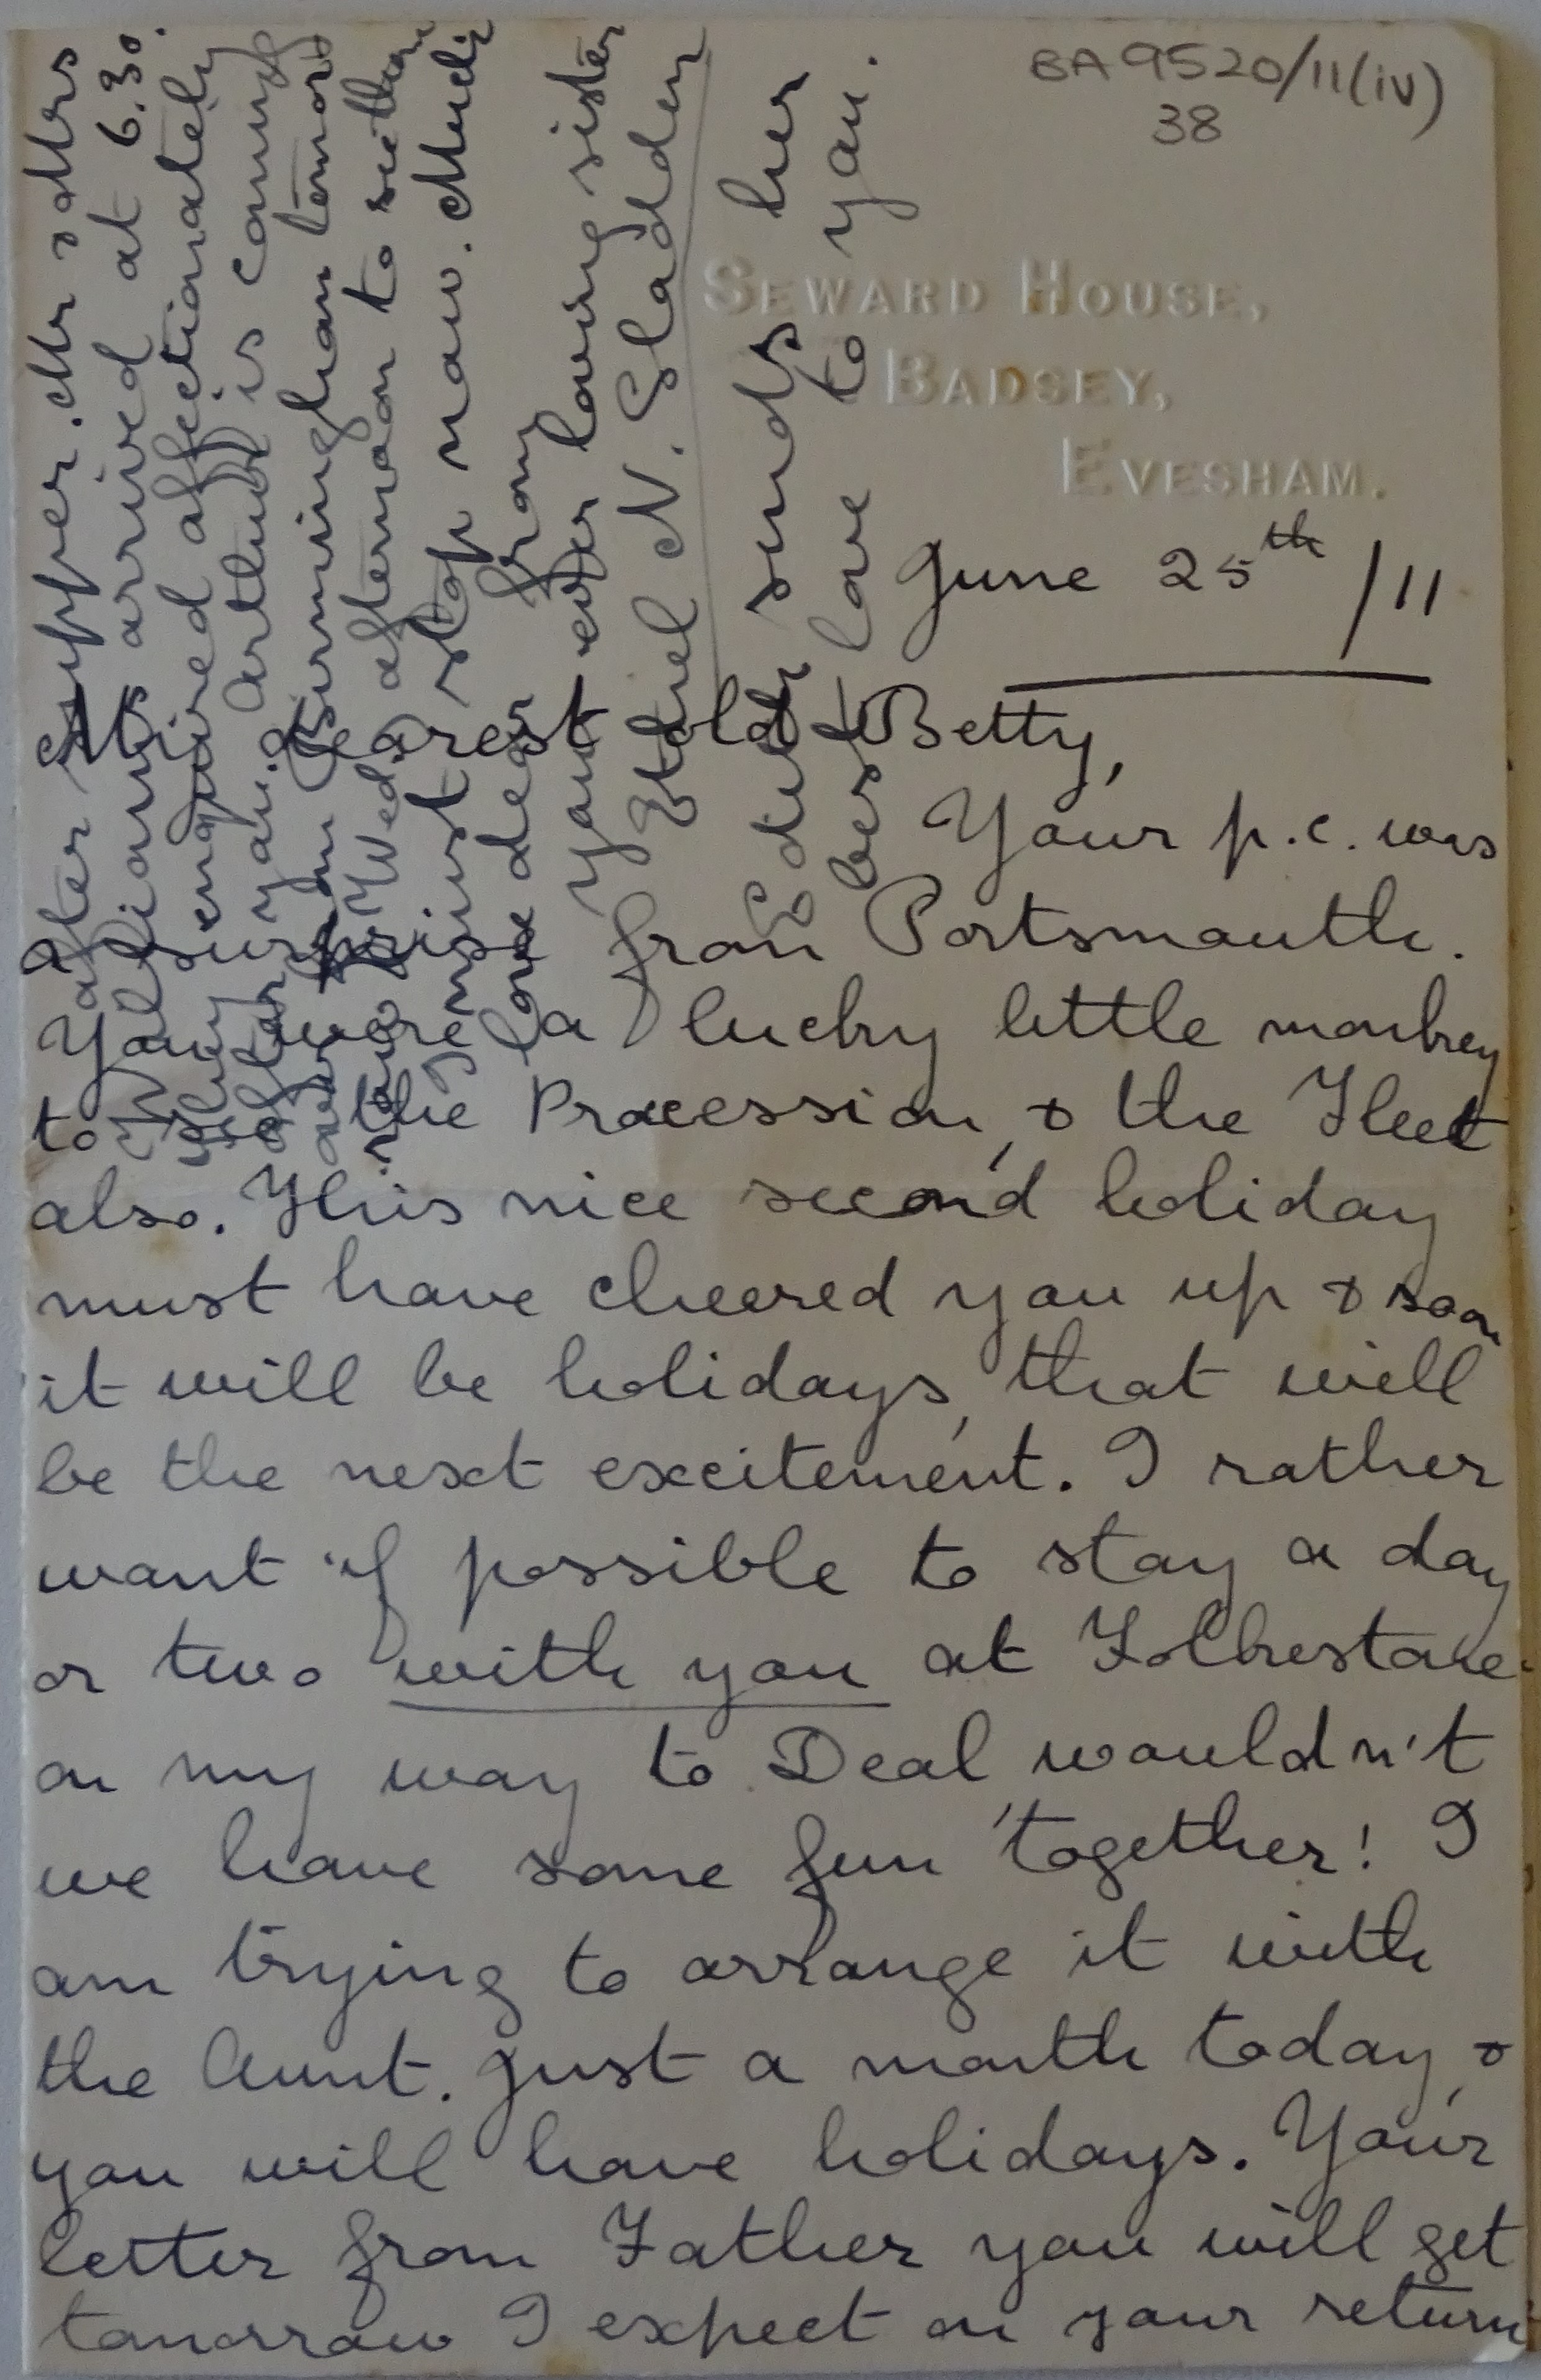 BA 9520/11(iv)
38
SEWARD HOUSE,
BADSEY,
EVESHAM.
June 25th /11
My dearest old Betty,
Your p.c. was
a surprise from Portsmouth.
You were a lucky little monkey
to see the Procession, & the Fleet
also. This nice second holiday
must have cheered you up & soon
it will be holidays, that will
be the next excitement. I rather
want if possible to stay a day
or two with you at Folkestone
on my way to Deal, wouldn't
we have some fun together! I
am trying to arrange it with
the Aunt. Just a month today, &
you will have holidays. Your
letter from Father you will get
tomorrow I expect on your return
after supper. Mr & Mrs
arrived at 6.30.
enquired affectionately
you. Arthur is coming
Birmingham tomor
afternoon to see them
must stop now. Much
love dear from
your ever loving sister
Ethel N. Sladden
sends her
best love to you.